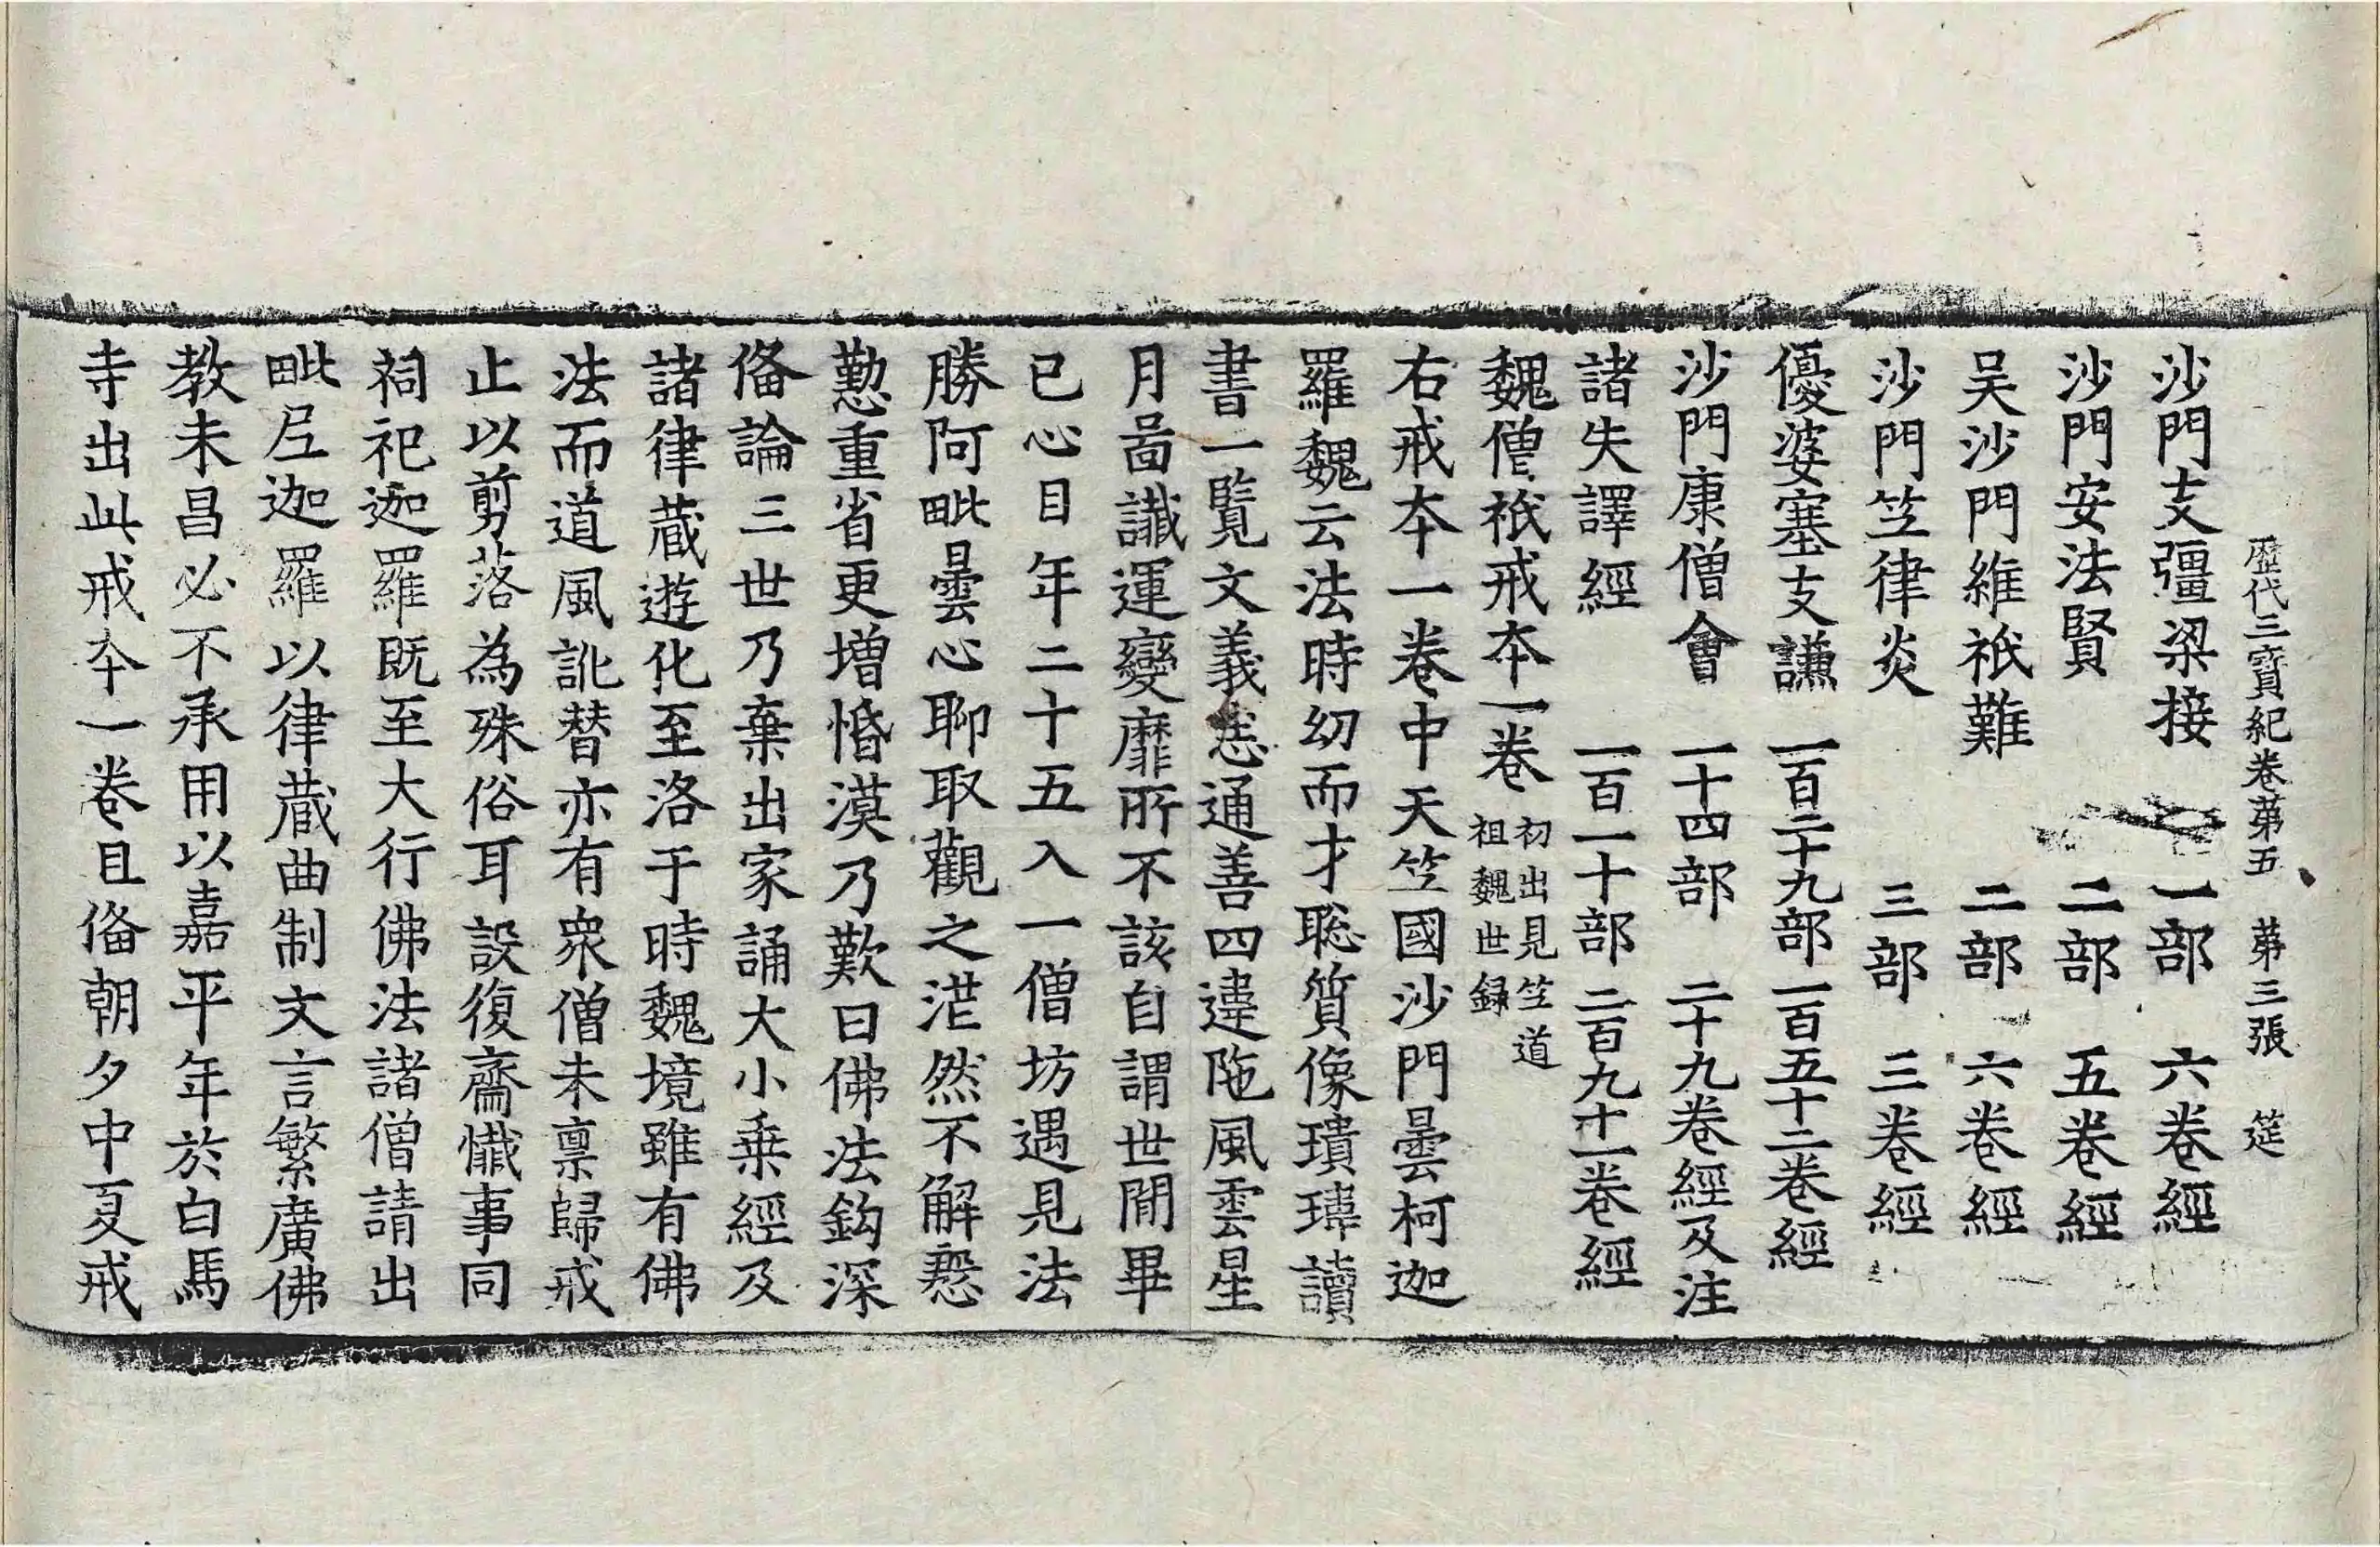 歷代三寶紀卷第五 第三張 筵
沙門支彊梁接 一部 六卷經
沙門安法賢 二部 五卷經
吴沙門維祇難 二部 六卷經
沙門笁律炎 三部 三卷經
優婆塞支謙 一百二十九部 一百五十二卷經
沙門康僧會 一十四部 二十九卷經及注
諸失譯經 一百一十部 二百九十一卷經
魏僧祇戒夲一卷 初出見笁道
祖魏世録
右戒夲一卷中天笁國沙門曇柯迦
羅魏云法時幼而才聡質像瓌瑋讀
書一覧文義悉通善四違陁風雲星
月啚讖運變靡所不該自謂世間畢
已心目年二十五入一僧坊遇見法
勝阿毗曇心聊取觀之茫然不解慇
懃重省更增惛漠乃歎曰佛法鈎深
俻論三世乃棄出家誦大小乗經及
諸律蔵遊化至洛于時魏境雖有佛
法而道風訛替亦有衆僧未禀歸戒
止以剪落為殊俗耳設復齋懴事同
祠祀迦羅既至大行佛法諸僧請出
毗尼迦羅以律蔵曲制文言繁廣佛
教未昌必不承用以嘉平年於白馬
寺出此戒夲一卷且俻朝夕中夏戒